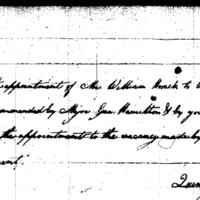 appointment of Mr William Roach to
commended by Major Gen Hamilton & by you
the appointment to the vacancy made by